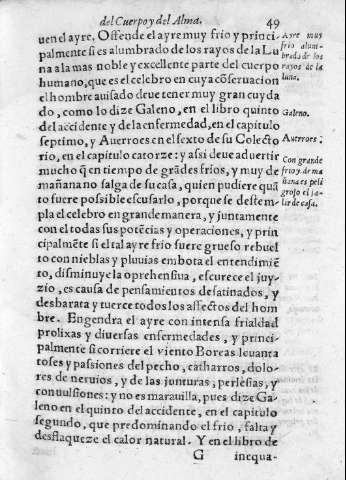 del Cuerpo y del Alma. 49
uen el ayre, Ofende el ayre muy frio y princi-
palmente si es alumbrado de los rayos de la Lu
na a la mas noble y excellente parte del cuerpo
humano, que es el celebro en cuya cõseruacion
el hombre auisado deue tener muy gran cuyda
do, como lo dize Galeno, en el libro quinto
del accidente y de la enfermedad, en el capitulo
septimo, y Auerroes en el sexto de su Colecto
rio, en el capitulo catorze: y assi deue aduertir
mucho q̃ en tiempo de grãdes frios, y muy de
mañana no salga de su casa, quien pudiere quã
to fuere possible escusarlo, porque se destem-
pla el celebro en grande manera, y juntamente
con el todas sus potẽcias y operaciones, y prin
cipalmẽte si el tal ayre frio fuere grueso rebuel
to con nieblas y pluuias embota el entendimiẽ
to, disminuye la oprehensiua, escurece el juy-
zio, es causa de pensamientos desatinados, y
desbarata y tuerce todos los affectos del hom
bre. Engendra el ayre con intensa frialdad
prolixas y diuersas enfermedades, y princi-
palmente si corriere el viento Boreas leuanta
toses y passiones del pecho, catharros, dolo-
res de neruios, y de las junturas, perlesias, y
conuulsiones: y no es marauilla, pues dize Ga-
leno en el quinto del accidente, en el capitulo
segundo, que predominando el frio, falta y
desflaqueze el calor natural. Y en el libro de
G inequa-
Ayre muy
frio alum-
brado de los
rayos de la
luna.
Galeno.
Auerroes.
Con grande
frio y de ma
ñana es peli
groso el sa-
lir de casa.